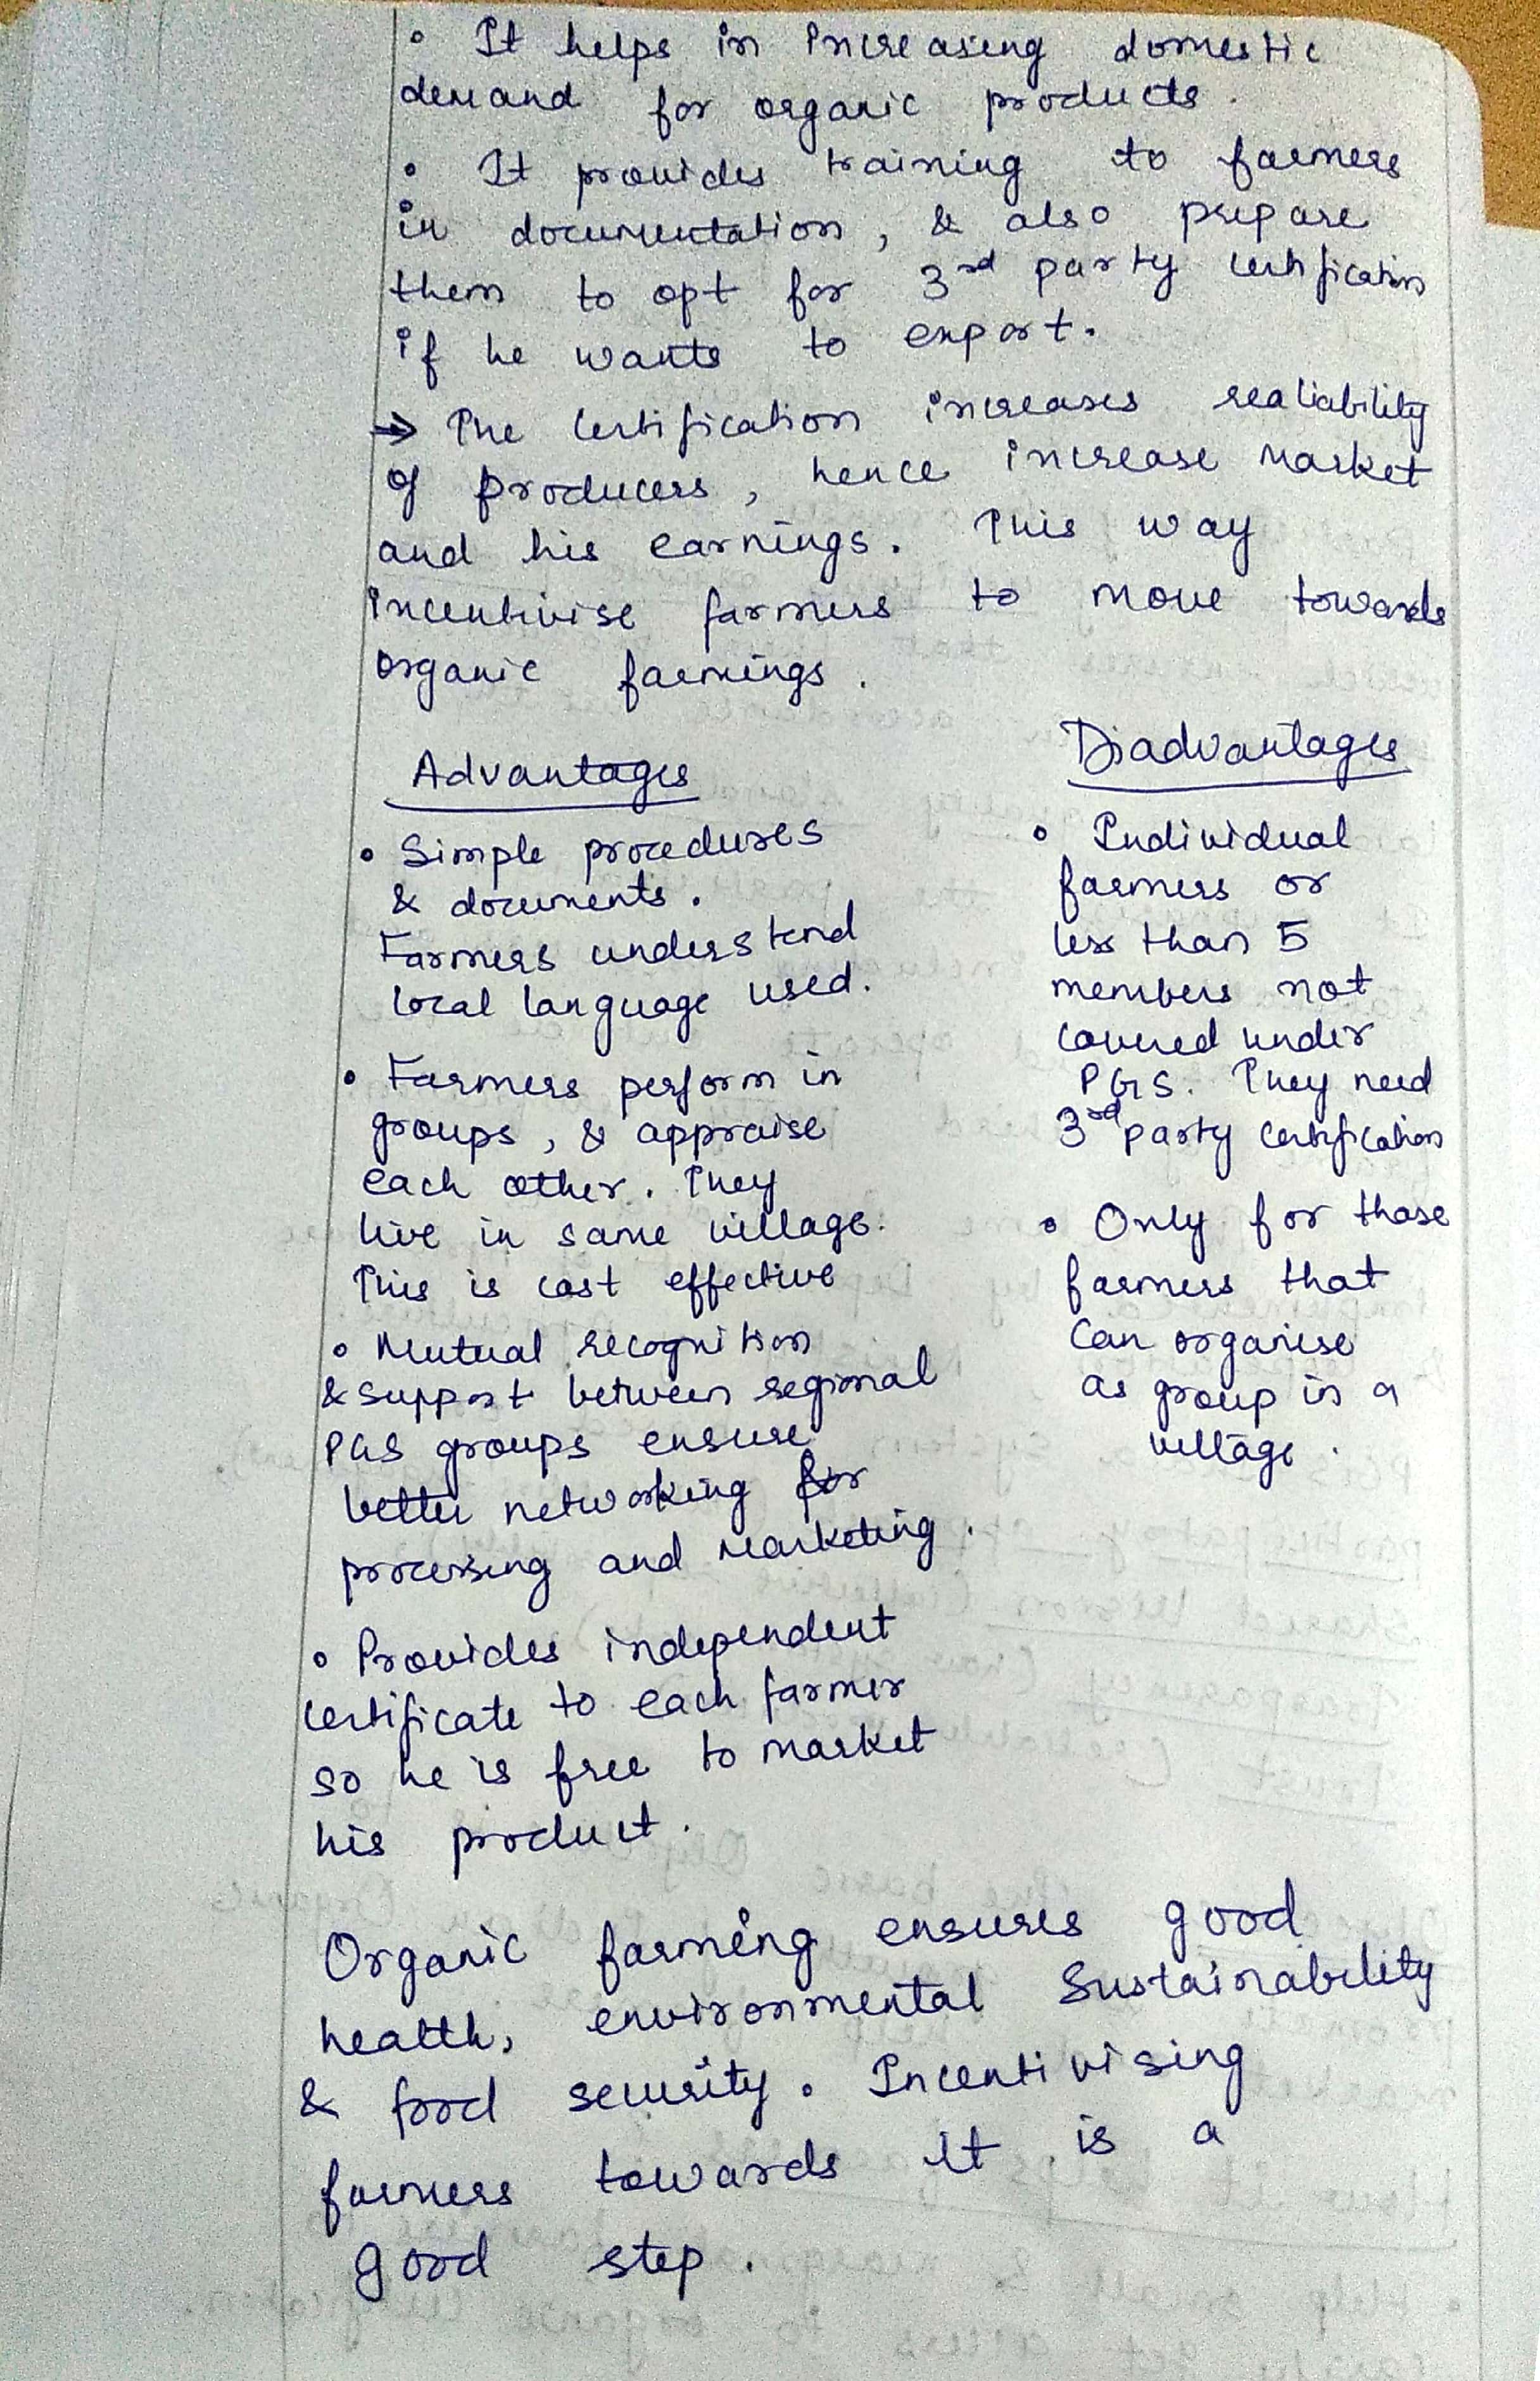 • It helps in increasing domestic
demand for organic products.
• It provides training to farmers
in documentation, & also prepare
them to opt for 3rd party certification
if he wants to export.
→ The certification increases realiability
of producers, hence increase market
and his earnings. This way
incentivise farmers to move towards
organic farmings.
Advantages
• Simple procedures
& documents.
Farmers understand
local language used.
• Farmers perform in
groups, & appraise
each other. They
live in same village.
This is cost effective
• Mutual recognition
& support between regional
PGS groups ensure
better networking for
processing and marketing.
• Provides independent
certificate to each farmer
so he is free to market
his product.
Diadvantages
• Individual
farmers or
less than 5
members not
covered under
PGS. They need
3rd party certification
• Only for those
farmers that
can organise
as group in a
village.
Organic farming ensures good
health, environmental sustainability
& food security. Incentivising
farmers towards it is a
good step.